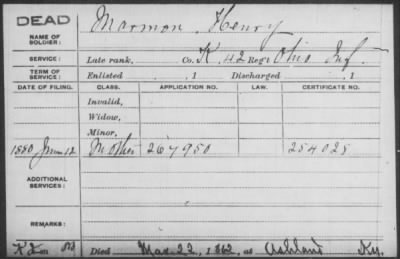 DEAD
NAME OF SOLDIER: Marmon, Henry
SERVICE: Late rank, Co. K, 42 Reg't Ohio Inf.
TERM OF SERVICE: Enlisted , 1 Discharged , 1
DATE OF FILING. CLASS. APPLICATION NO. LAW. CERTIFICATE NO.
Invalid,
Widow,
Minor,
1880 June 12 Mother 267950 254025
ADDITIONAL SERVICES:
REMARKS:
Died Mar 22, 1862, at Ashland Ky.